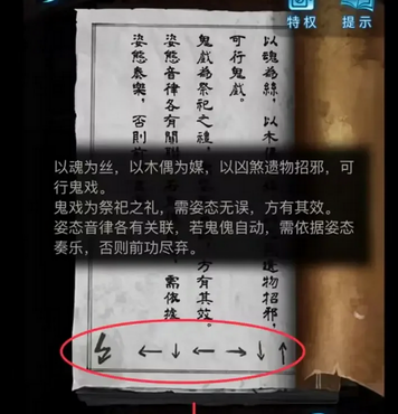 特权 提示
以魂為絲，以木偶
遺物招邪，
可行鬼戲。
鬼戲為祭祀之禮，
方有其效。
姿態音律各有關聯
需依據
姿態奏樂，否則前
以魂为丝，以木偶为媒，以凶煞遗物招邪，可
行鬼戏。
鬼戏为祭祀之礼，需姿态无误，方有其效。
姿态音律各有关联，若鬼傀自动，需依据姿态
奏乐，否则前功尽弃。
← ↓ ← → ↓ ↑